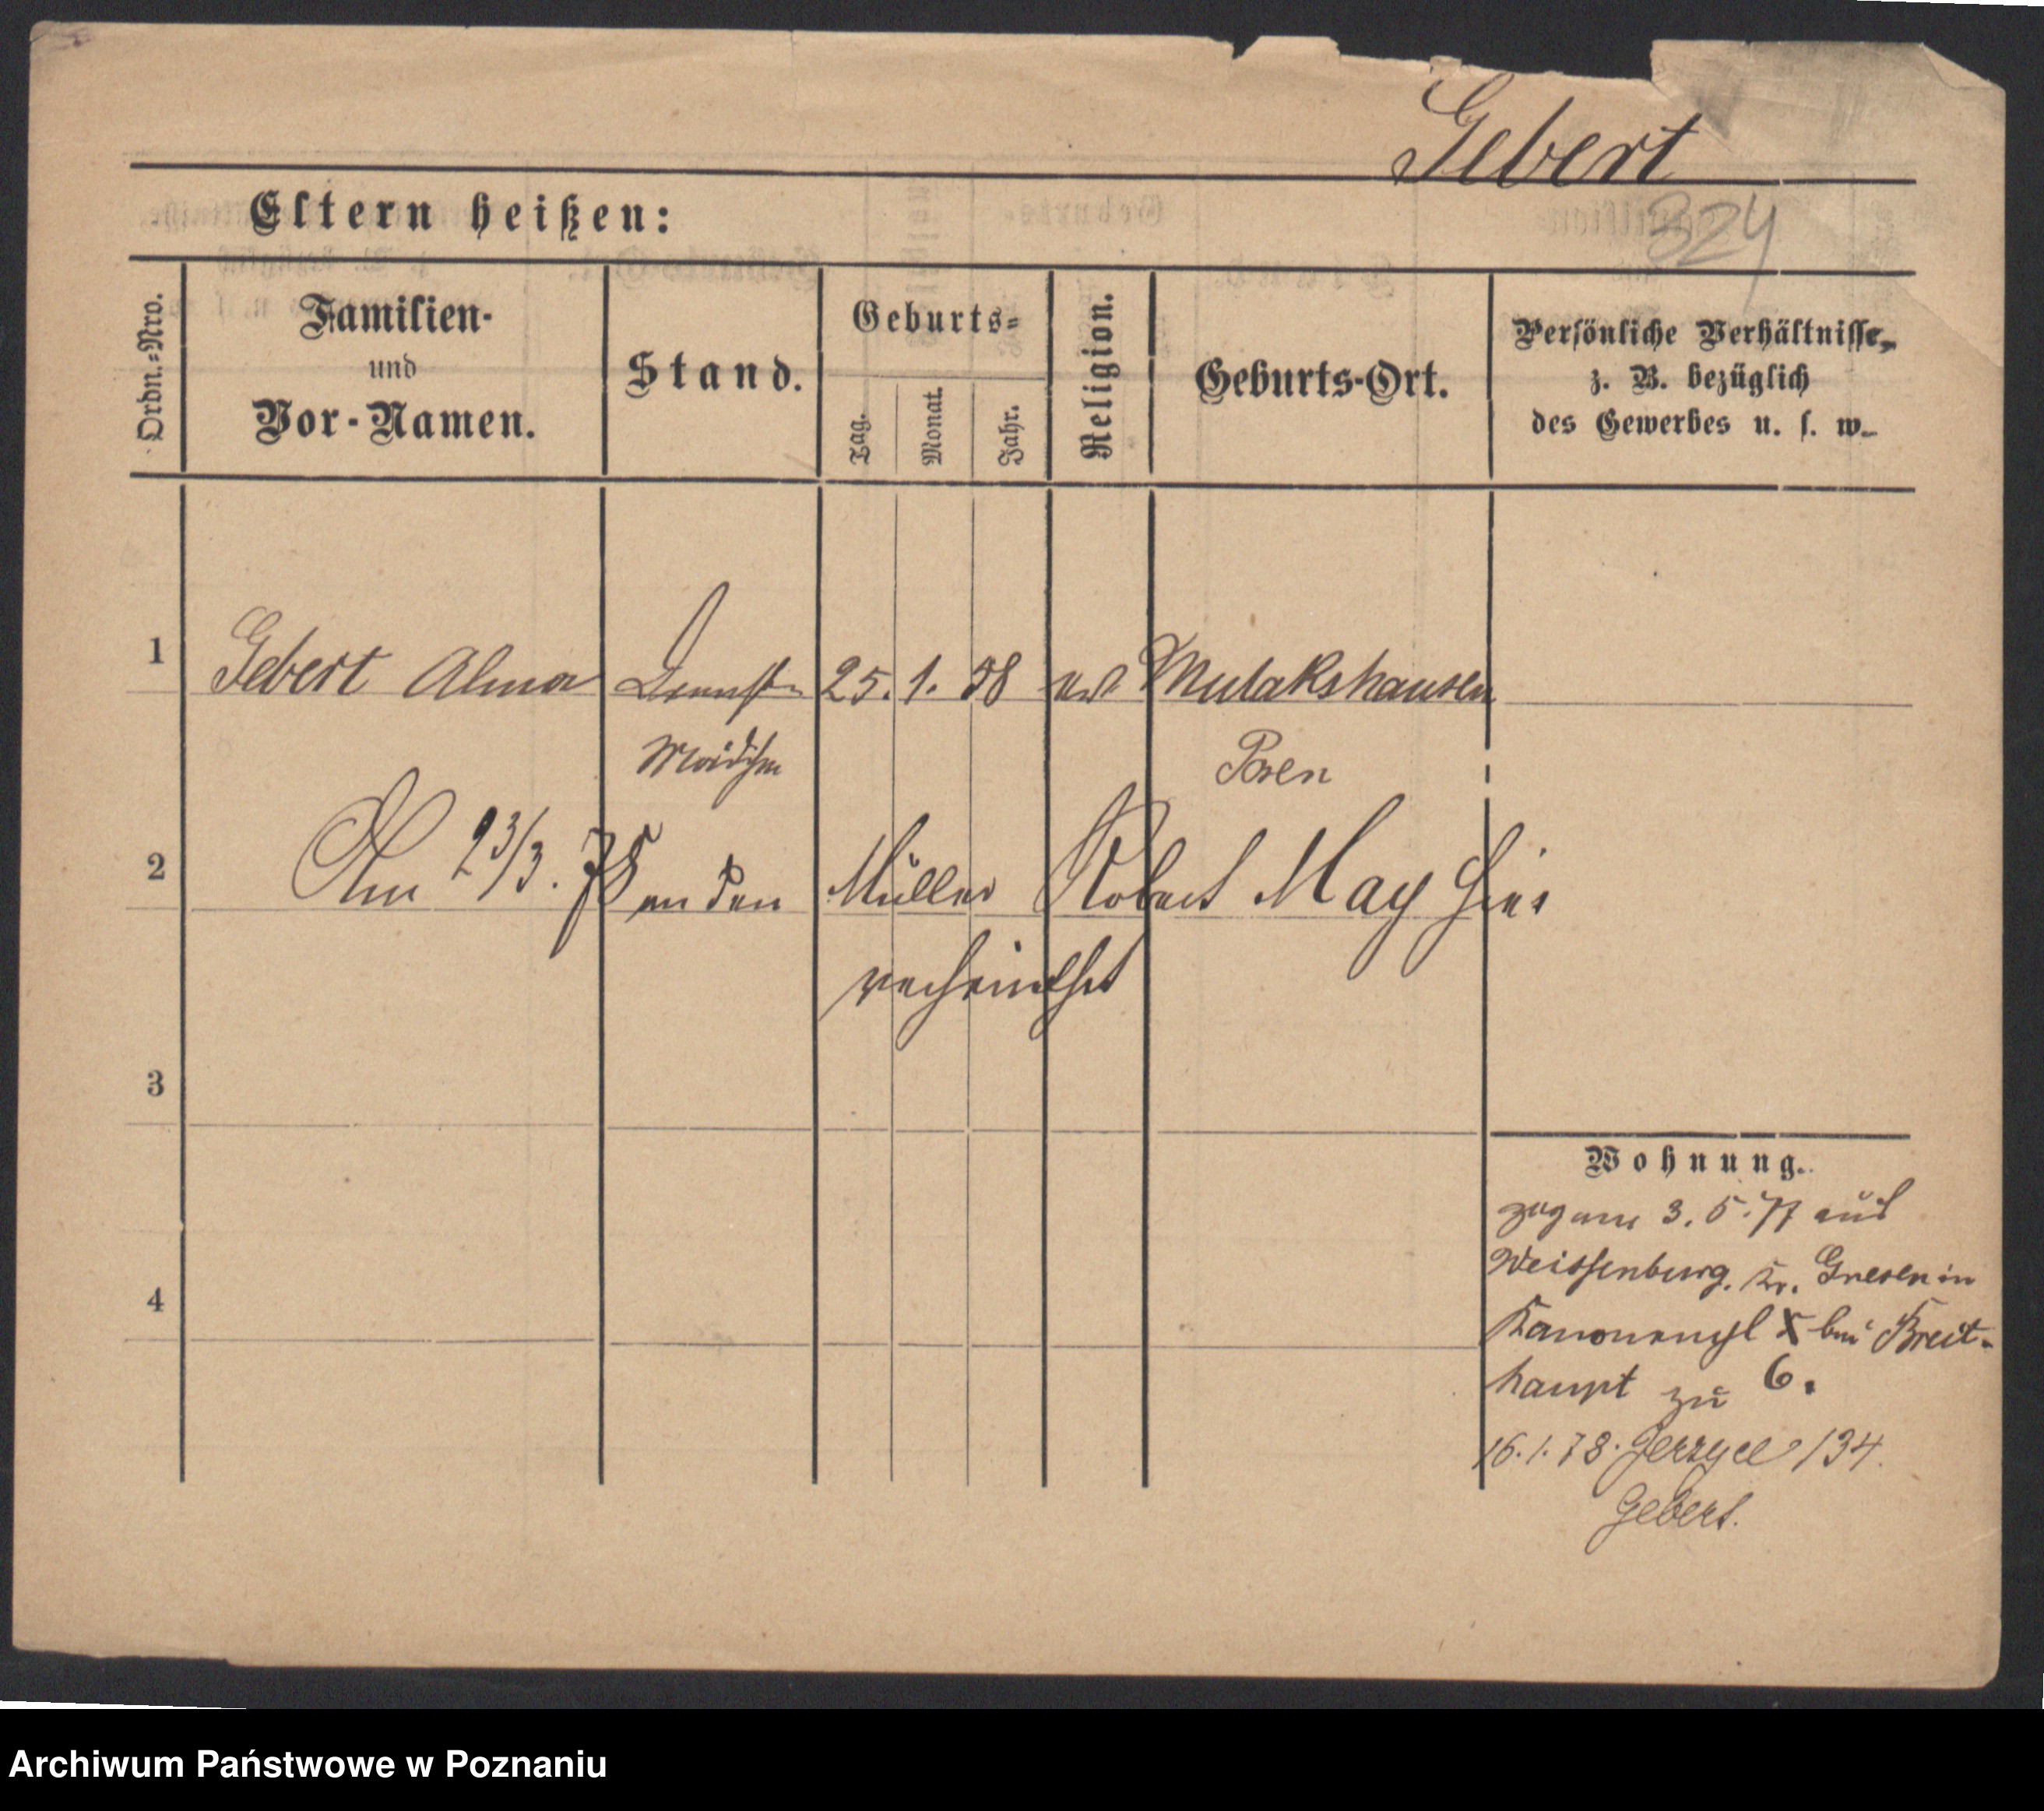 Gebert
324
Eltern heißen:
Ordn.=Nro.
Familien-
und
Vor-Namen.
Stand.
Geburts=
Tag.
Monat.
Jahr.
Religion.
Geburts-Ort.
Persönliche Verhältnisse,
z. B. bezüglich
des Gewerbes u. s. w.
1 Gebert Alma Dienst- 25. 1. 58 ev. Mulakshausen
Mädchen Posen
2 Am 23/3. 78 an den Müller Robert May hier
verheirathet
3
Wohnung.
zug am 3. 5. 77 aus
Weissenburg. Kr. Gnesen in
4
Kanonenpl X bei Breit-
haupt zu 6.
16. 1. 78. Jerzyce 134.
Gebert.
Archiwum Państwowe w Poznaniu